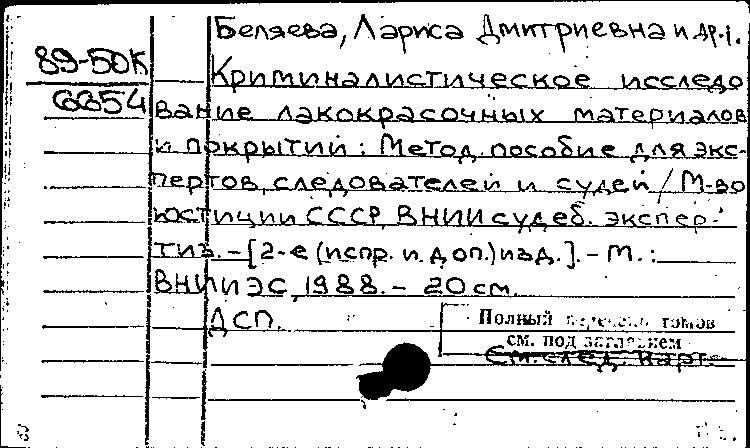 Беляева, Лариса Дмитриевна и др.
89-50К
6854
Криминалистическое исследо
вание лакокрасочных материалов
и покрытий: Метод. пособие для экс-
пертов, следователей и судей / М-во
юстиции СССР, ВНИИ судеб. экспер-
тиз. – [2-е (испр. и доп.) изд.]. – М.:
ВНИИЭС, 1988. – 20 см.
ДСП.
Полный перечень томов
см. под заглавием
См. след. карт.